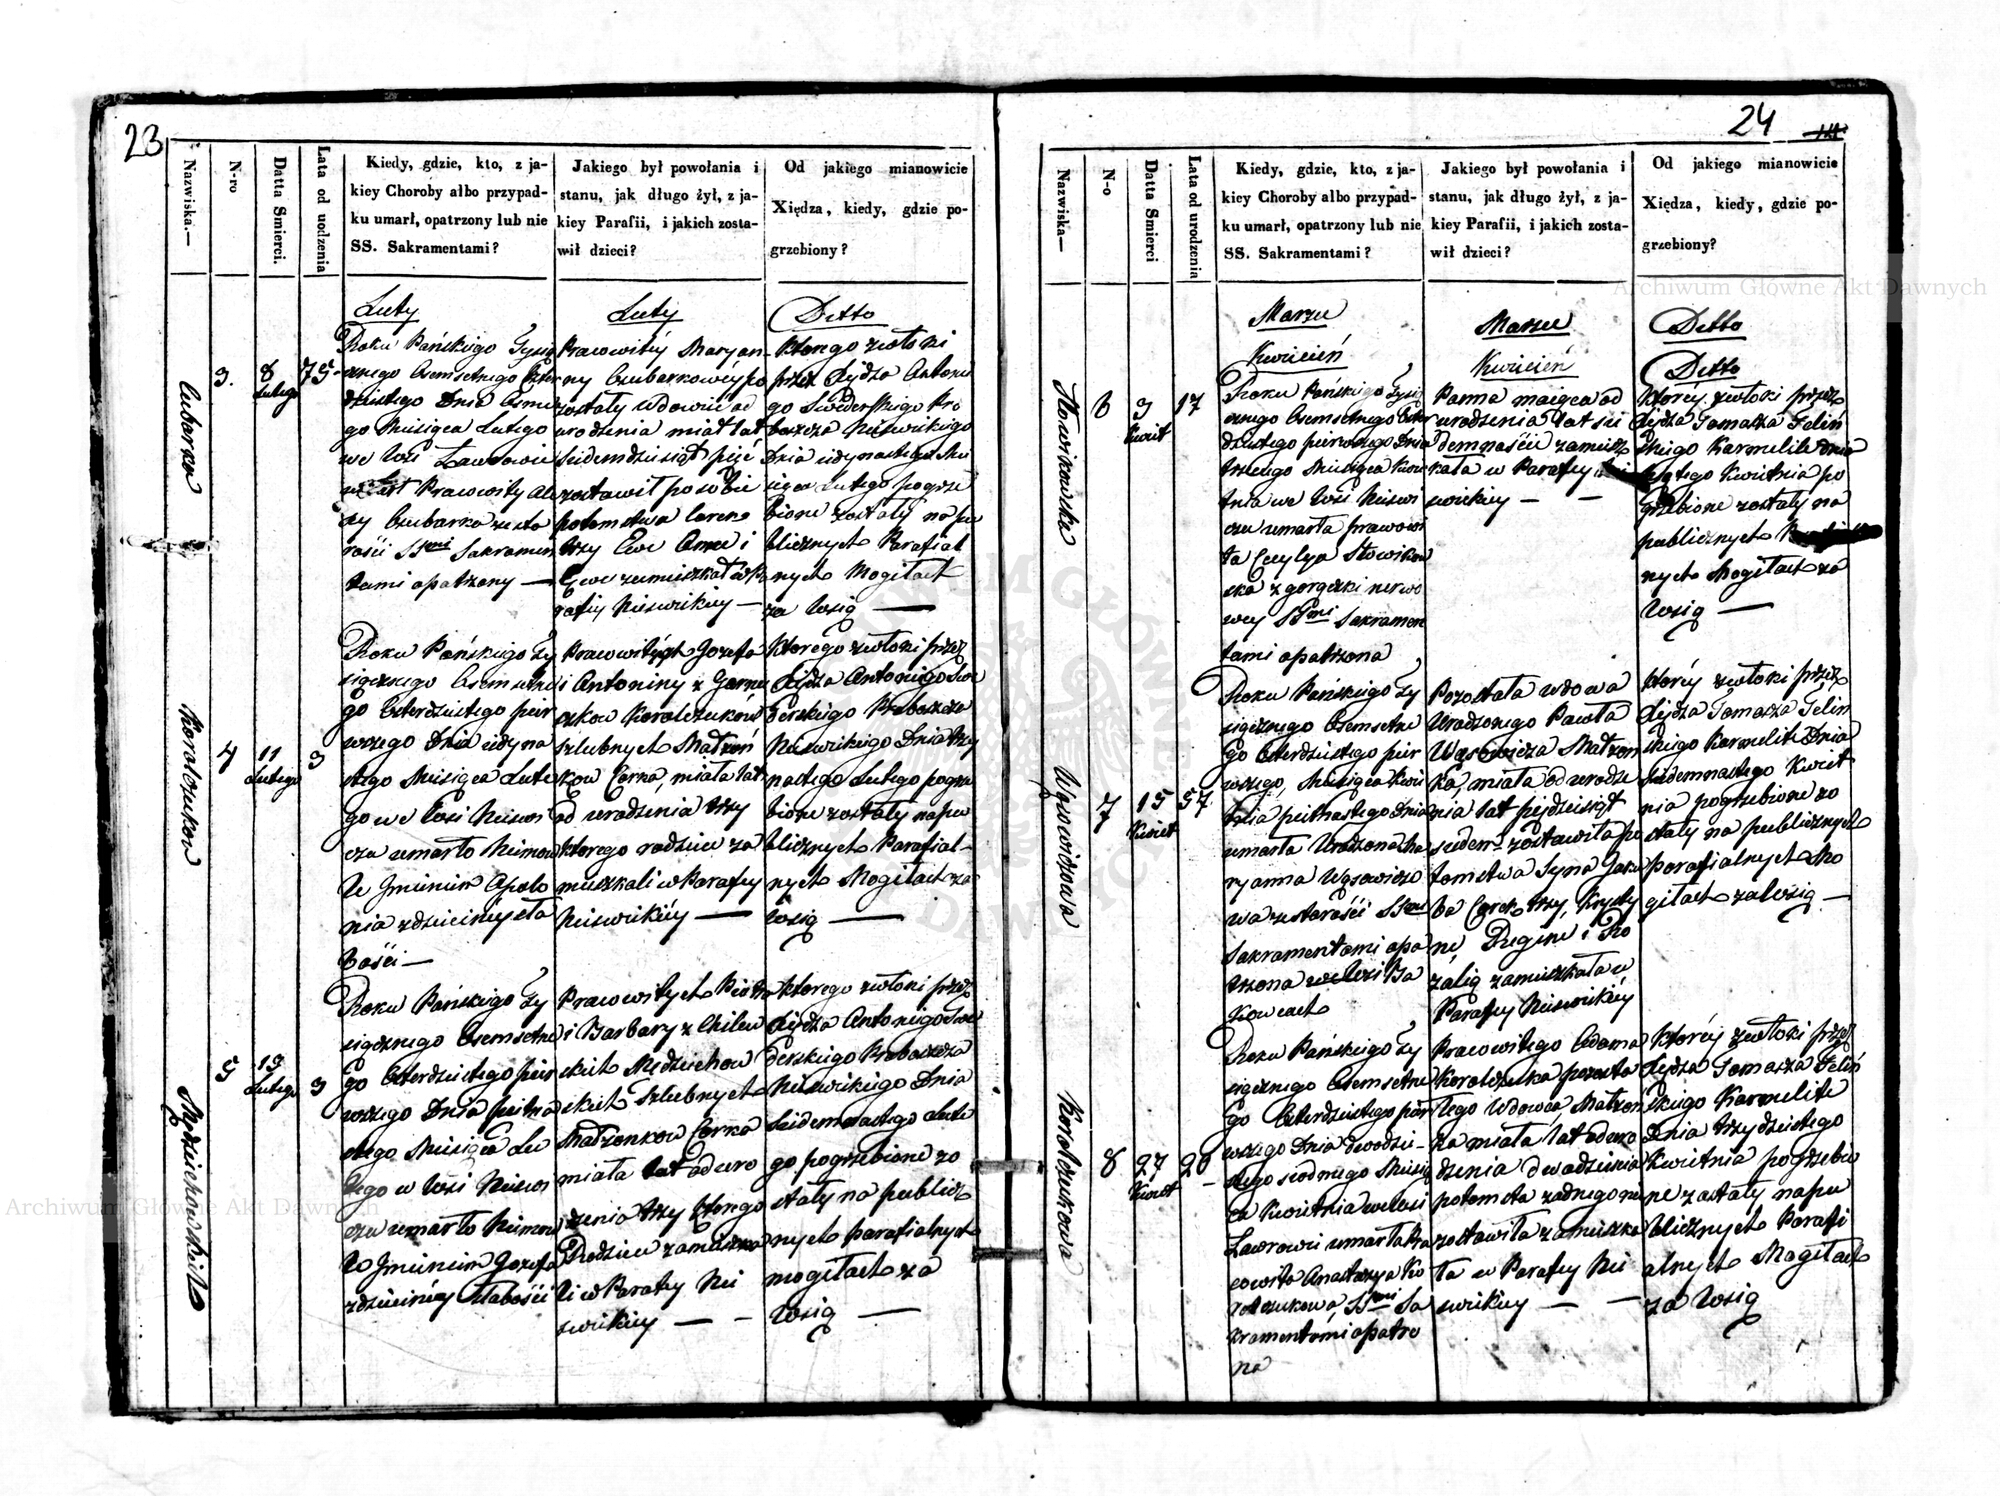 23
Nazwiska.—
N-ro
Datta Smierci.
Lata od urodzenia
Kiedy, gdzie, kto, z ja-
kiey Choroby albo przypad-
ku umarł, opatrzony lub nie
SS. Sakramentami?
Jakiego był powołania i
stanu, jak długo żył, z ja-
kiey Parafii, i jakich zosta-
wił dzieci?
Od jakiego mianowicie
Xiędza, kiedy, gdzie po-
grzebiony?
Luty
Luty
Ditto
3.
8
Lutego
75
Roku Pańskiego Tysią
cznego Osemsetnego
dziestego Dnia Osme
go Miesiąca Lutego
we Wsi Ławrowie
umarł Pracowity
Czubarka ze sta
rości SSmi Sakramen
tami opatrzony —
Pracowitey Maryan-
ny Czubarkowey po
zostały Wdowiec od
urodzenia miał lat
Siedemdziesiąt pięć
zostawił po sobie
potomstwa Corene
trzy Ewe Anne i
Ewe zamieszkał w Pa
rafiy Nieswickiey —
Ktorego zwłoki
przez Xiędza Antonie
go Swiderskiego Pro
boszcza Nieswickiego
Dnia iedynastego Mie
siąca Lutego pogrze
bione zostały na pu
blicznych Parafial
nych Mogiłach
za Wsią —
Korolczukow
4
11
Lutego
3
Roku Pańskiego Ty
siącznego Osemsetne
go Czterdziestego pier
wszego Dnia iedyna
stego Miesiąca Lute
go we Wsi Nieswi
czu umarło Niemow
le Imieniem Apolo
nia z dziecinney sła
bości —
Pracowitych Jozefa
i Antoniny z
Korolczuków
Szlubnych Małżon
kow Corka, miała lat
od urodzenia trzy
ktorego rodzice za
mieszkali w Parafiy
Nieswickiey —
Ktorego zwłoki przez
Xiędza Antoniego Swi
derskiego Proboszcza
Nieswickiego Dnia trzy
nastego Lutego pogrze
bione zostały na pu
blicznych Parafial-
nych Mogiłach za
Wsią —
5
15
Lutego
3
Roku Pańskiego Ty
siącznego Osemsetne
go Czterdziestego pier
wszego Dnia pietna
stego Miesiąca Lu
tego w Wsi Nieswi
czu umarło Niemow
le Imieniem Jozefa
z dziecinney słabości
Pracowitych Piotra
i Barbary z
skich
skich Szlubnych
Małżonkow Corka
miała lat od uro
dzenia trzy ktorego
Rodzice zamieszka
li w Parafiy Nie
swickiey — –
Ktorego zwłoki przez
Xiędza Antoniego Swi
derskiego Proboszcza
Nieswickiego Dnia
Siedemnastego Lute
go pogrzebione zo
stały na publicz
nych parafialnych
mogiłach za
Wsią —
24
Nazwiska—
N-o
Datta Smierci
Lata od urodzenia
Kiedy, gdzie, kto, z ja-
kiey Choroby albo przypad-
ku umarł, opatrzony lub nie
SS. Sakramentami?
Jakiego był powołania i
stanu, jak długo żył, z ja-
kiey Parafii, i jakich zosta-
wił dzieci?
Od jakiego mianowicie
Xiędza, kiedy, gdzie po-
grzebiony?
Marzec
Kwiecień
Marzec
Kwiecień
Ditto
Ditto
Słowikowska
6
3
Kwiet
17
Roku Pańskiego Tysią
cznego Osemsetnego Czter
dziestego pierwszego Dnia
trzeciego Miesiąca Kwie
tnia we Wsi Nieswi
czu umarła pracowi
ta Cecylya Słowikow
ska z gorączki nerwo
wey SSmi Sakramen
tami opatrzona
Panna maiąca od
urodzenia lat sie
demnaście zamiesz
kała w Parafiy
swickiey — –
Ktorey zwłoki przez
Xiędza Tomasza Feliń
skiego Karmelite Dnia
piątego Kwietnia po
grzebione zostały na
publicznych
nych Mogiłach za
Wsią —
Wąsowiczowa
7
15
Kwiet
57
Roku Pańskiego Ty
siącznego Osemsetne
go Czterdziestego pier
wszego, Miesiąca Kwie
tnia pietnastego Dnia
umarła Urodzona Ma
ryanna Wąsowiczo
wa ze starości SSmi
Sakramentami opa
trzona we Wsi
kowcach
Pozostała wdowa
Urodzonego Pawła
Wąsowicza Małżon
ka, miała od urodze
nia lat pięćdziesiąt
siedem zostawiła po
tomstwa Syna Jaku
ba Corek trzy, Krysty
nę, Reginę i Ro
zalią zamieszkała w
Parafiy Nieswickiey
Ktorey zwłoki przez
Xiędza Tomasza Feliń
skiego Karmelite Dnia
siedemnastego Kwiet
nia pogrzebione zo
stały na publicznych
parafialnych Mo
giłach za Wsią —
Korolczukowa
8
27
Kwiet
20
Roku Pańskiego Ty
siącznego Osemsetne
go Czterdziestego pier
wszego Dnia dwódzie-
stego siodmego Miesią
ca Kwietnia we Wsi
Ławrowie umarła Pra
cowita Anastazya Ko
rolczukowa, SSmi Sa
kramentami opatrzo
na
Pracowitego Adama
Korolczuka pozosta
łego Wdowca Małżon
ka miała lat od uro
dzenia dwadzieścia
potomstwa żadnego nie
zostawiła zamieszka
ła w Parafiy Nie
swickiey — –
Ktorey zwłoki przez
Xiędza Tomasza Feliń
skiego Karmelite
Dnia trzydziestego
Kwietnia pogrzebio
ne zostały na pu
blicznych Parafi
alnych Mogiłach
za Wsią
Archiwum Główne Akt Dawnych
Archiwum Główne Akt Dawnych